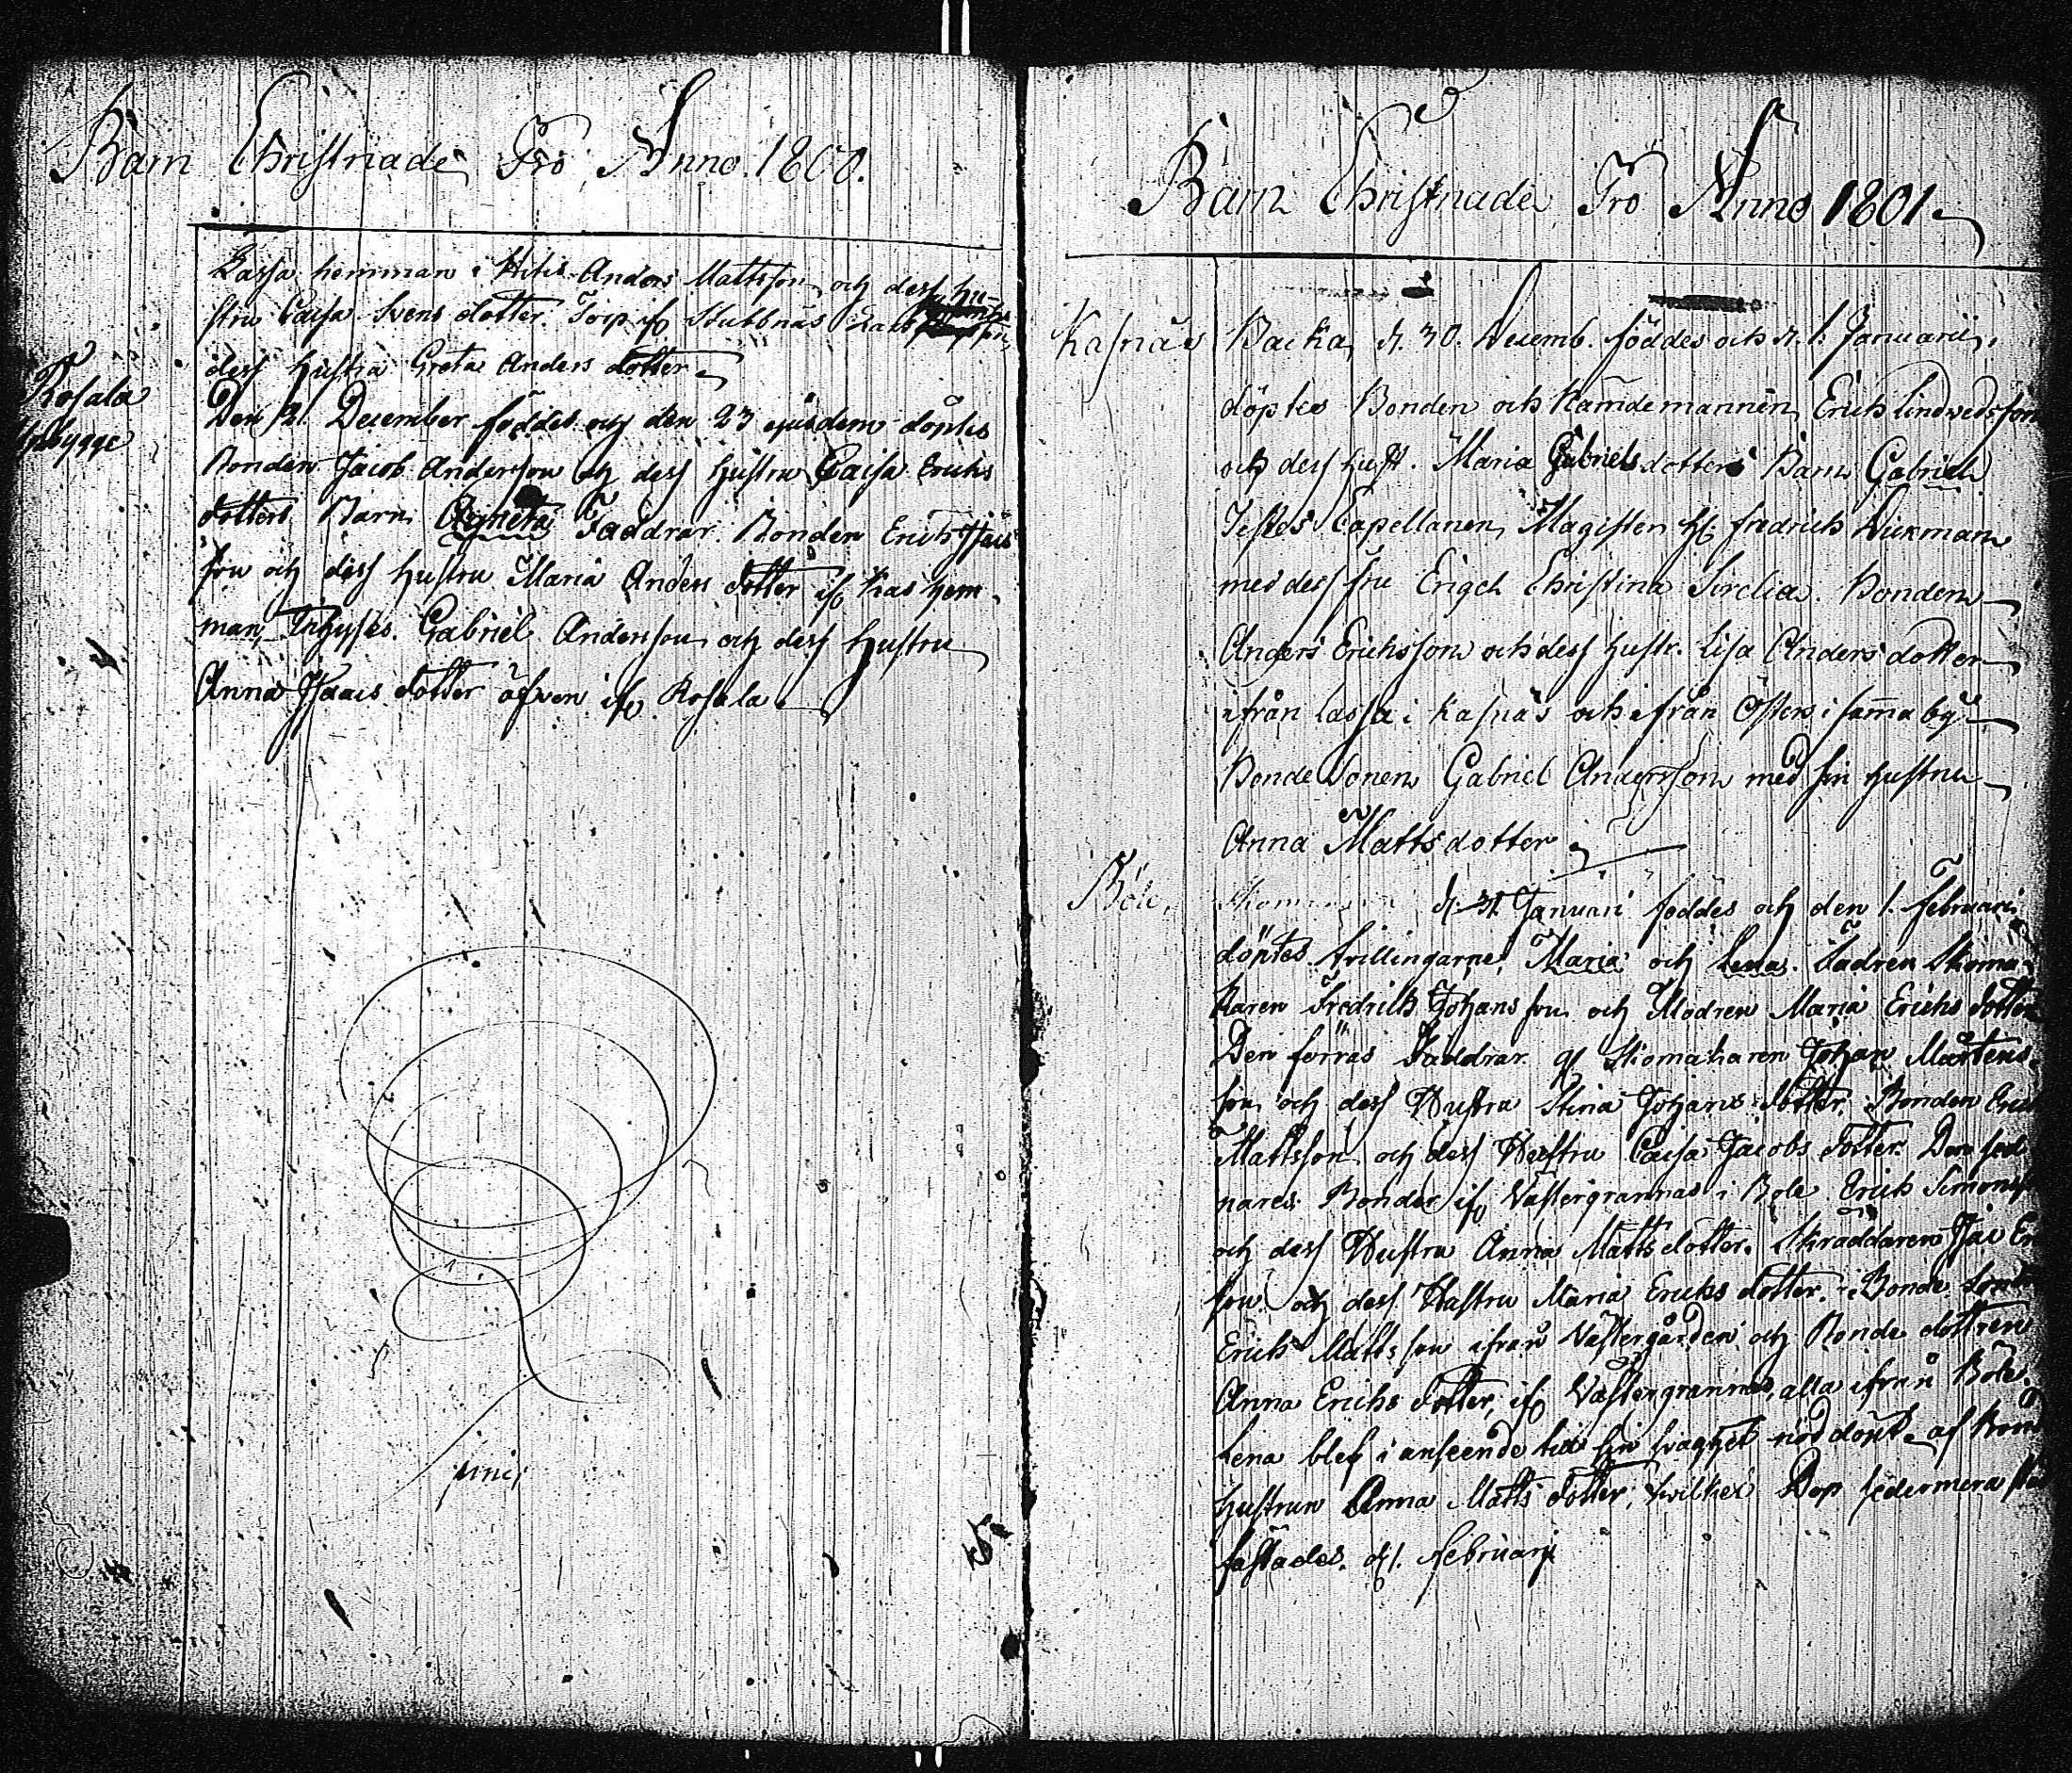 Barn Christnade Pro Anno 1800.
Lassa hemman i Hitis Anders Mattsson och dess hu-
stru Caisa Svens dotter. Torp. ifr. Stubbnäs Lars
dess hustru Greta Anders dotter
Rosala
bygge
Den 21. December föddes och den 23 ejusdem döptes
Bonden Jacob Andersson och dess hustru Caisa Erichs
dotters Barn Agneta Faddrar. Bonden Erich Isacs
son och dess Hustru Maria Anders dotter ifr. Kas hem-
man, Inhyses. Gabriel Andersson och dess Hustru
Anna Isaacs dotter äfven ifr. Rosala
finis
Barn Christnade Pro Anno 1801.
Kasnäs
Backa, d. 30. Decemb. föddes och d. 1. Januarii,
döptes Bonden och Nämdemannen Erich Lindvedsson
och dess hust. Maria Gabriels dotters Barn Gabriel
Testes Capellanen, Magister H. Fredrich Wikman
med dess fru Engel Christina Sirelia. Bonden
Anders Erichsson och dess hustr. Lisa Anders dotter
ifrån Lassa i Kasnäs och ifrån Östers i samma by
Bonde Sonen Gabriel Andersson med sin hustru
Anna Mattsdotter
Böle,
d. 31 Januari föddes och den 1. Februari
döptes tvillingarne, Maria och Lena. Fadren Skoma-
karen Fredrich Johansson och Modren Maria Erichs dotter
Den förras Faddrar. gl. Skomakaren Johan Mårtens-
son och dess Hustru Stina Johans dotter. Bonden Erich
Mattsson och dess Hustru Caisa Jacobs dotter. Den sed
nares Bonden ifr. Västergrannas i Böle Erich Simons
och dess Hustru Anna Matts dotter. Skräddaren Isac Er
son och dess Hustru Maria Erichs dotter. Bonde Son
Erich Mattsson ifrån Västergården och Bonde dottren
Anna Erichs dotter, ifr. Västergrannas, alla ifrån Böle.
Lena blef i anseende till sin svaghet nöddöpt af Bond
hustrun Anna Matts dotter, hvilket Dop sedermera
fästades. d. 1. Februarij